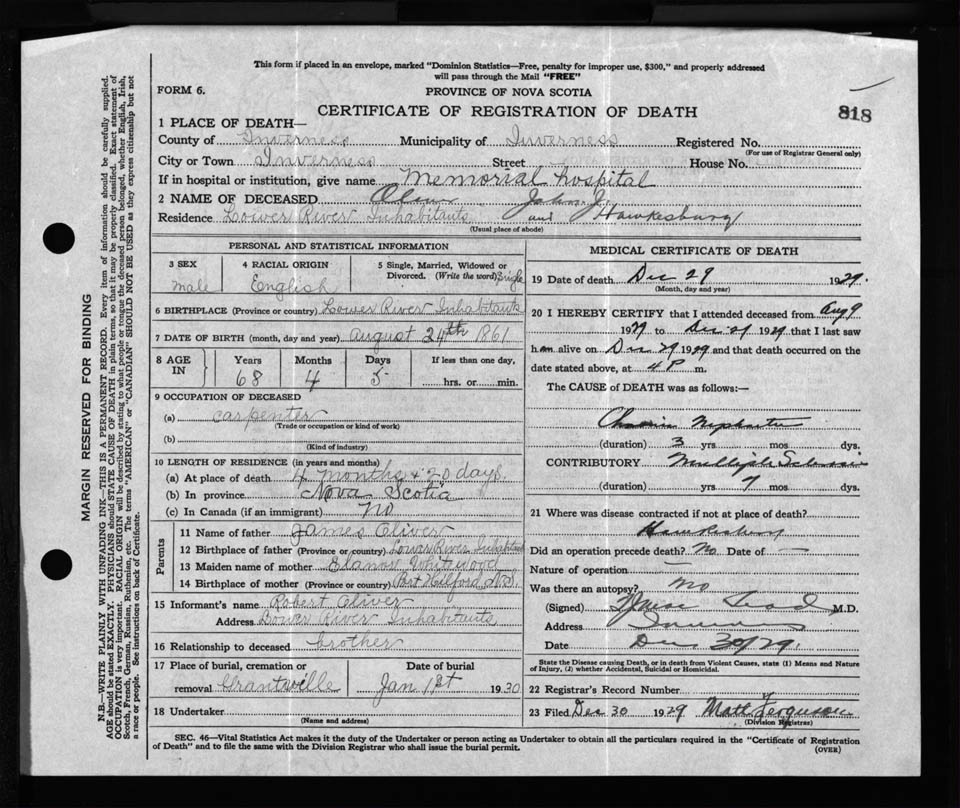 This form if placed in an envelope, marked "Dominion Statistics—Free, penalty for improper use, $300," and properly addressed
will pass through the Mail "FREE"
FORM 6.
PROVINCE OF NOVA SCOTIA
CERTIFICATE OF REGISTRATION OF DEATH
818
1 PLACE OF DEATH—
County of Inverness Municipality of Inverness Registered No.
(For use of Registrar General only)
City or Town Inverness Street House No.
If in hospital or institution, give name Memorial hospital
2 NAME OF DECEASED Oliver John J.
Residence Lower River Inhabitants and Hawkesbury
(Usual place of abode)
PERSONAL AND STATISTICAL INFORMATION
3 SEX
male
4 RACIAL ORIGIN
English
5 Single, Married, Widowed or
Divorced. (Write the word) Single
6 BIRTHPLACE (Province or country) Lower River Inhabitants
7 DATE OF BIRTH (month, day and year) August 24th 1861
8 AGE IN
Years Months Days If less than one day,
68 4 5 hrs. or min.
9 OCCUPATION OF DECEASED
(a) carpenter
(Trade or occupation or kind of work)
(b)
(Kind of industry)
10 LENGTH OF RESIDENCE (in years and months)
(a) At place of death 4 months & 20 days
(b) In province Nova Scotia
(c) In Canada (if an immigrant) No
Parents
11 Name of father James Oliver
12 Birthplace of father (Province or country) Lower River Inhabitants
13 Maiden name of mother Elanor Whitwood
14 Birthplace of mother (Province or country) Port Hilford N.S.
15 Informant's name Robert Oliver
Address Lower River Inhabitants
16 Relationship to deceased brother
17 Place of burial, cremation or Date of burial
removal Grantville Jan 1st 1930
18 Undertaker
(Name and address)
MEDICAL CERTIFICATE OF DEATH
19 Date of death Dec 29 1929.
(Month, day and year)
20 I HEREBY CERTIFY that I attended deceased from Aug 9
1929 to Dec 29 1929 that I last saw
him alive on Dec 29 1929 and that death occurred on the
date stated above, at 4 P m.
The CAUSE of DEATH was as follows:—
Chronic Nephritis
(duration) 3 yrs mos dys.
CONTRIBUTORY Multiple Sclerosis
(duration) 7 yrs mos dys.
21 Where was disease contracted if not at place of death?
Hawkesbury
Did an operation precede death? No Date of —
Nature of operation —
Was there an autopsy? No
(Signed) M.D.
Address Inverness
Date Dec 30/29.
State the Disease causing Death, or in death from Violent Causes, state (1) Means and Nature
of Injury, (2) whether Accidental, Suicidal or Homicidal.
22 Registrar's Record Number
23 Filed Dec 30 1929 Matt Ferguson
(Division Registrar)
SEC. 46—Vital Statistics Act makes it the duty of the Undertaker or person acting as Undertaker to obtain all the particulars required in the "Certificate of Registration
of Death" and to file the same with the Division Registrar who shall issue the burial permit.
(OVER)
MARGIN RESERVED FOR BINDING
N.B.—WRITE PLAINLY WITH UNFADING INK—THIS IS A PERMANENT RECORD. Every item of information should be carefully supplied.
AGE should be stated EXACTLY. PHYSICIANS should STATE CAUSE OF DEATH in plain terms, so that it may be properly classified. Exact statement of
OCCUPATION is very important. RACIAL ORIGIN will be described by stating to what people or tongue the deceased person belonged, whether English, Irish,
Scotch, French, German, Russian, Ruthenian, etc. The terms "AMERICAN" or "CANADIAN" SHOULD NOT BE USED as they express citizenship but not
a race or people. See instructions on back of Certificate.